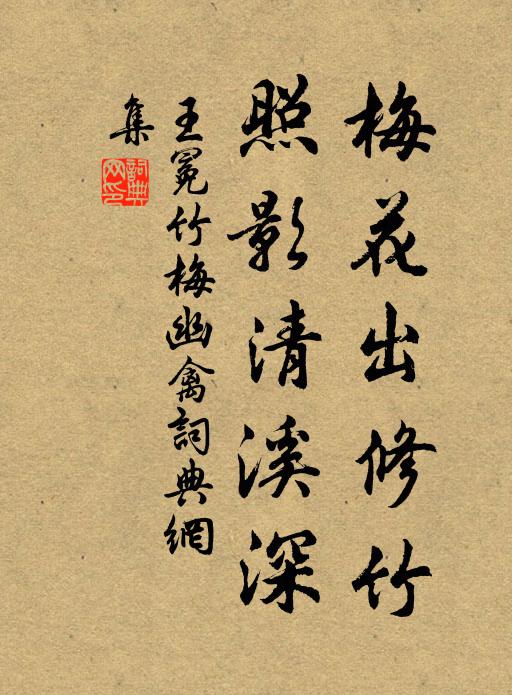 梅花出修竹
照影清溪深
王冕竹梅幽禽詞典網
集
詞典网印